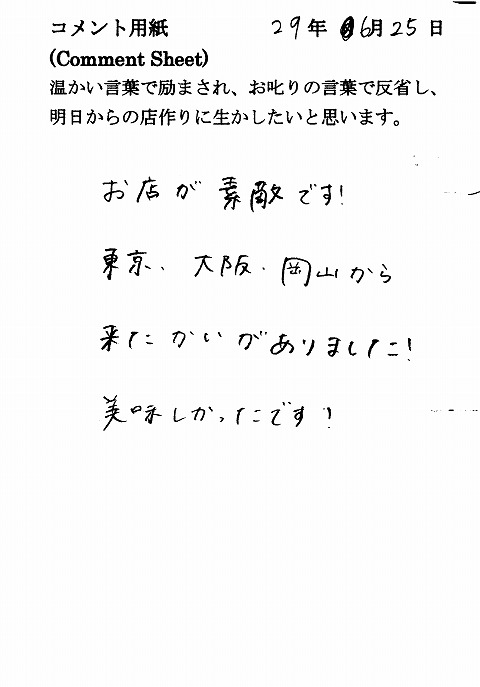 コメント用紙 29年 6月25日
(Comment Sheet)
温かい言葉で励まされ、お叱りの言葉で反省し、
明日からの店作りに生かしたいと思います。
お店が素敵です!
東京、大阪、岡山から
来たかいがありました!
美味しかったです!